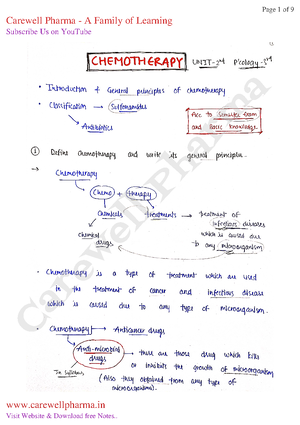 Page 1 of 9
Carewell Pharma - A Family of Learning
Subscribe Us on YouTube
CHEMOTHERAPY UNIT-3rd P'cology-3rd
• Introduction + General principles of chemotherapy
• Classification → Sulfonamides
→ Antibiotics
Acc to semester exam
and basic knowledge
① Define chemotherapy and write its general principles.
→ Chemotherapy
Chemo + therapy
Chemicals treatments → treatment of
infectious diseases
Chemical
drugs
which is caused due
to any microorganism
• Chemotherapy is a type of treatment which are used
in the treatment of cancer and infectious disease
which is caused due to any type of microorganism.
• Chemotherapy → Anticancer drugs
Anti-microbial
drugs
→ these are those drug which kills
or inhibit the growth of microorganism
In syllabus
(Also they obtained from any type of
microorganisms).
CarewellPharma
www.carewellpharma.in
Visit Website & Download free Notes..